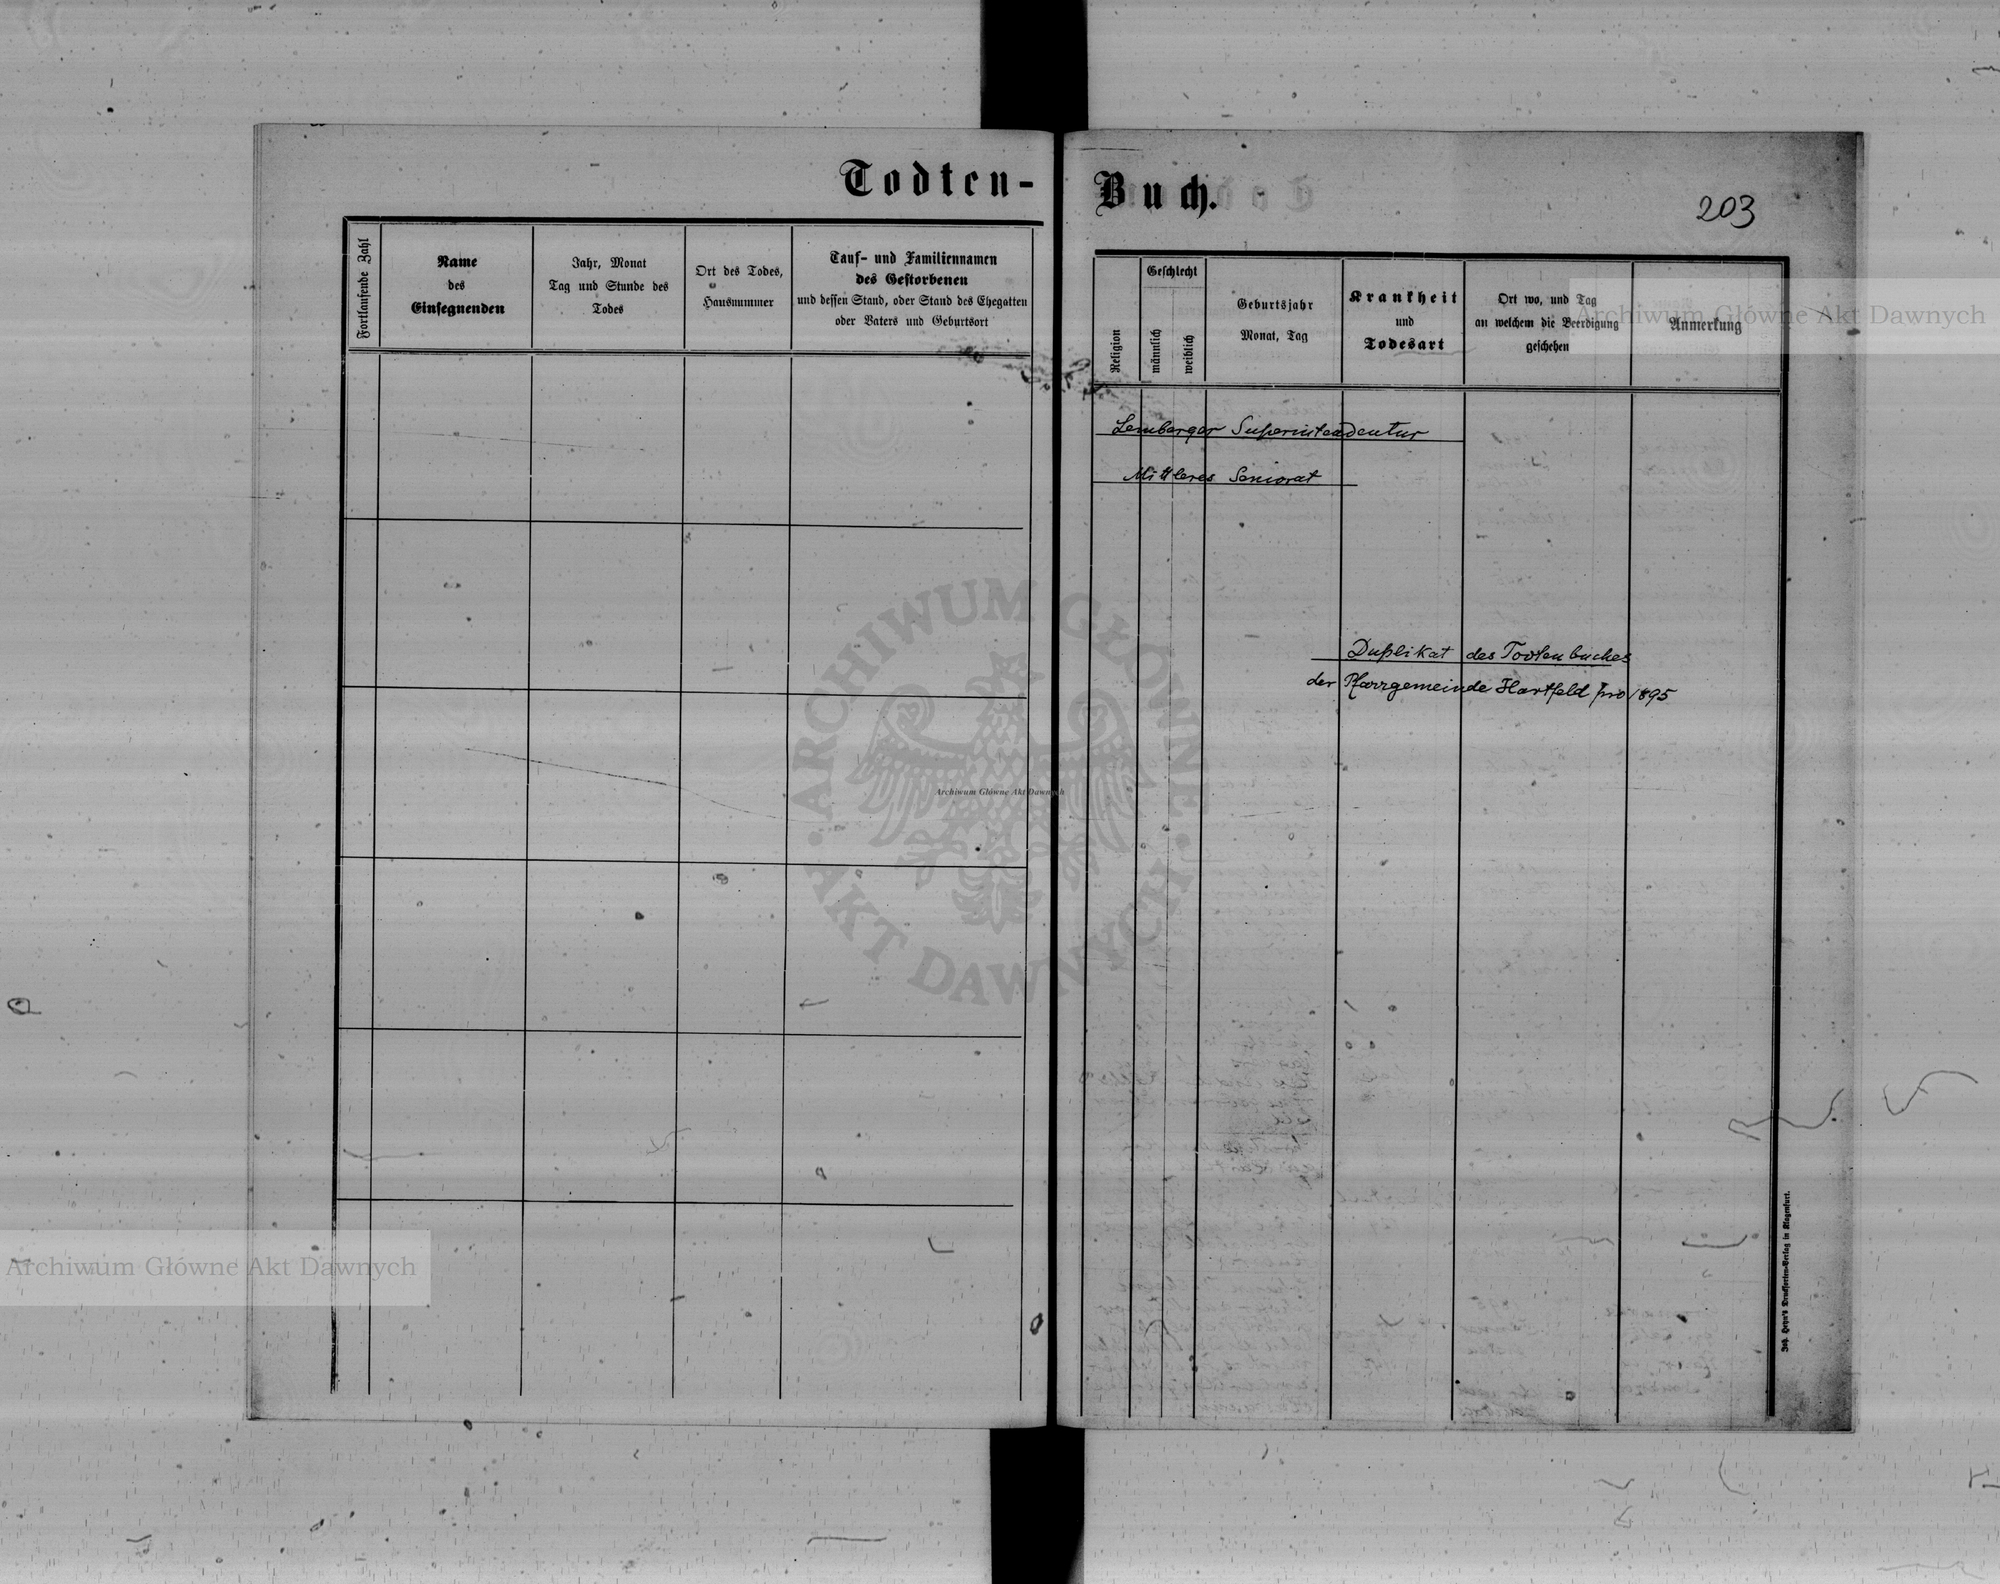 Todten-
Buch.
203
Fortlaufende Zahl
Name
des
Einsegnenden
Jahr, Monat
Tag und Stunde des
Todes
Ort des Todes,
Hausnummer
Tauf- und Familiennamen
des Gestorbenen
und dessen Stand, oder Stand des Ehegatten
oder Vaters und Geburtsort
Religion
Geschlecht
männlich
weiblich
Geburtsjahr
Monat, Tag
Krankheit
und
Todesart
Ort wo, und Tag
an welchem die Beerdigung
geschehen
Anmerkung
Lemberger Superintendentur
Mittleres Seniorat
Duplikat des Todtenbuches
der Pfarrgemeinde Hartfeld pro 1895
Archiwum Główne Akt Dawnych
ARCHIWUM GŁÓWNE
AKT DAWNYCH
Archiwum Główne Akt Dawnych
Archiwum Główne Akt Dawnych
Verlag in Klagenfurt.